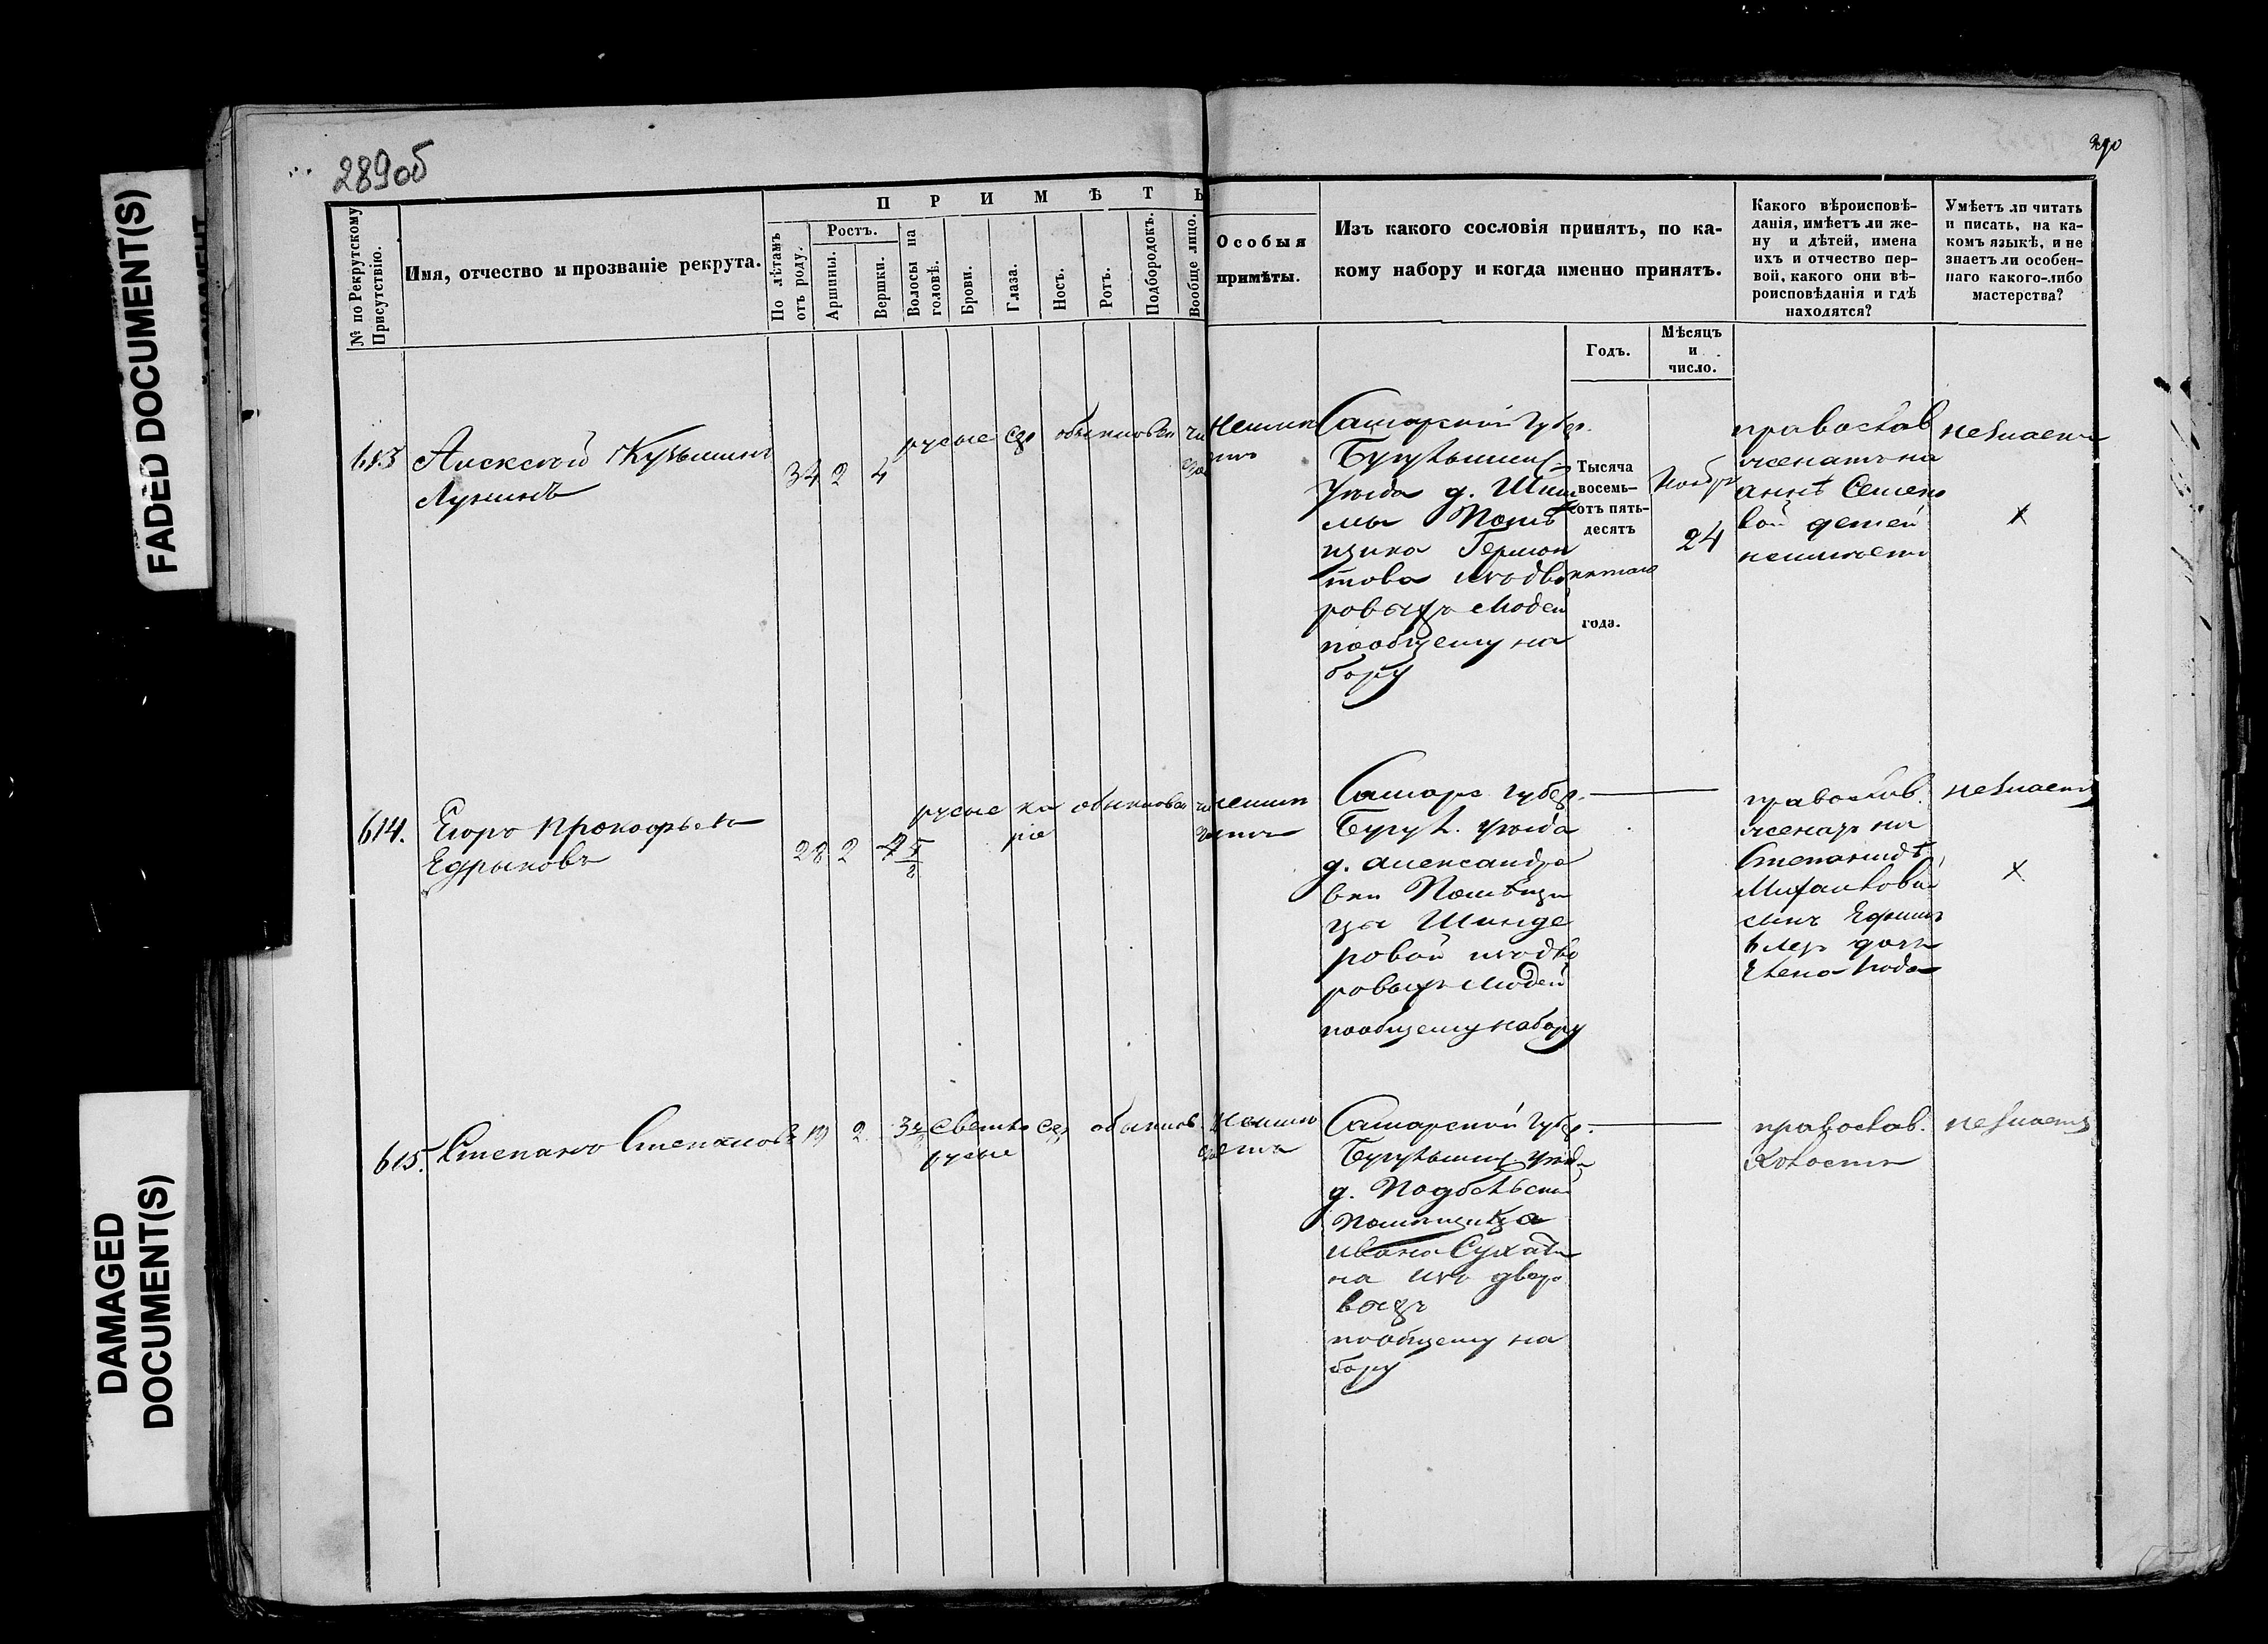 FADED DOCUMENT(S)
DAMAGED
DOCUMENT(S)
289об
290
№ по Рекрутскому
Присутствію.
Имя, отчество и прозваніе рекрута.
П Р И М Ѣ Т Ы
По лѣтамъ
отъ роду.
Ростъ.
Аршины.
Вершки.
Волосы на
головѣ.
Брови.
Глаза.
Носъ.
Ротъ.
Подбородокъ.
Вообще лицо.
Особыя
примѣты.
Изъ какого сословія принятъ, по ка-
кому набору и когда именно принятъ.
Годъ.
Мѣсяцъ
и
число.
Какого вѣроисповѣ-
данія, имѣетъ ли же-
ну и дѣтей, имена
ихъ и отчество пер-
вой, какого они вѣ-
роисповѣданія и гдѣ
находятся?
Умѣетъ ли читать
и писать, на ка-
комъ языкѣ, и не
знаетъ ли особен-
наго какого-либо
мастерства?
613
Алексей Кузьминъ
Лунинъ
34 2 4
русые сер обыкновен чи
Самарской Губер.
Бугульминс
Уезда д.
Помѣ
щика
издво
ровыхъ людей
пообщему на
бору
Тысяча
восемь-
сотъ пять-
десятъ
пятаго
года.
Ноябр
24
православ
женатъ на
Аннѣ Семено
вой детей
неимеетъ
незнаетъ
х
614.
Егоръ Прокофьевъ
28 2 4
русые ка обыкновен чи
ріе
Самарс губер.
Бугул. уезда
д. Александро
вки Помѣщи
цы Шинде
ровой издво
ровыхъ людей
пообщему набору
православ.
женатъ на
Степанидѣ
Михайловой
сынъ Ефимъ
6 лет дочь
Елена года
незнаетъ
х
615.
Степанъ Степановъ
19 2 3
светло сер обыкнов.
русые
Самарской Губер.
Бугульминс. уезда
д. Подбельской
помещика
Ивана
на изъ дворо
выхъ
пообщему на
бору
православ.
Холостъ
незнаетъ